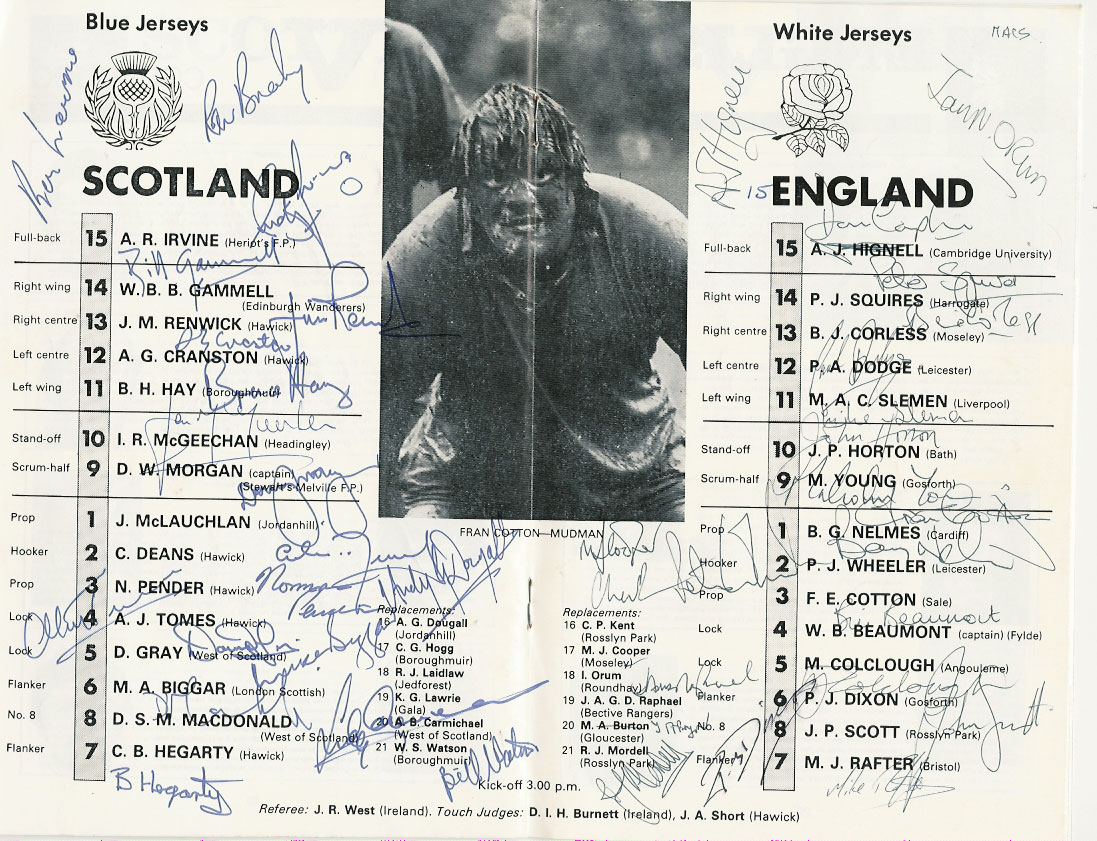 Blue Jerseys
SCOTLAND
Full-back 15 A. R. IRVINE (Heriot's F.P.)
Bill Gammell
Right wing 14 W. B. B. GAMMELL
(Edinburgh Wanderers)
Right centre 13 J. M. RENWICK (Hawick)
Left centre 12 A. G. CRANSTON (Hawick)
Left wing 11 B. H. HAY (Boroughmuir)
Stand-off 10 I. R. McGEECHAN (Headingley)
Scrum-half 9 D. W. MORGAN (captain)
(Stewart's Melville F.P.)
Prop 1 J. McLAUCHLAN (Jordanhill)
Hooker 2 C. DEANS (Hawick)
Prop 3 N. PENDER (Hawick)
Lock 4 A. J. TOMES (Hawick)
Lock 5 D. GRAY (West of Scotland)
Flanker 6 M. A. BIGGAR (London Scottish)
No. 8 8 D. S. M. MACDONALD
(West of Scotland)
Flanker 7 C. B. HEGARTY (Hawick)
B Hegarty
FRAN COTTON—MUDMAN
Replacements:
16 A. G. Dougall
(Jordanhill)
17 C. G. Hogg
(Boroughmuir)
18 R. J. Laidlaw
(Jedforest)
19 K. G. Lawrie
(Gala)
20 A. B. Carmichael
(West of Scotland)
21 W. S. Watson
(Boroughmuir)
Bill Watson
Replacements:
16 C. P. Kent
(Rosslyn Park)
17 M. J. Cooper
(Moseley)
18 I. Orum
(Roundhay)
19 J. A. G. D. Raphael
(Bective Rangers)
20 M. A. Burton
(Gloucester)
21 R. J. Mordell
(Rosslyn Park)
Kick-off 3.00 p.m.
White Jerseys
MACS
15 ENGLAND
Full-back 15 A. J. HIGNELL (Cambridge University)
Right wing 14 P. J. SQUIRES (Harrogate)
Right centre 13 B. J. CORLESS (Moseley)
Left centre 12 P. A. DODGE (Leicester)
Left wing 11 M. A. C. SLEMEN (Liverpool)
John Horton
Stand-off 10 J. P. HORTON (Bath)
Scrum-half 9 M. YOUNG (Gosforth)
Prop 1 B. G. NELMES (Cardiff)
Hooker 2 P. J. WHEELER (Leicester)
Prop 3 F. E. COTTON (Sale)
Bill Beaumont
Lock 4 W. B. BEAUMONT (captain) (Fylde)
Lock 5 M. COLCLOUGH (Angouleme)
Flanker 6 P. J. DIXON (Gosforth)
No. 8 8 J. P. SCOTT (Rosslyn Park)
Flanker 7 M. J. RAFTER (Bristol)
Referee: J. R. West (Ireland). Touch Judges: D. I. H. Burnett (Ireland), J. A. Short (Hawick)